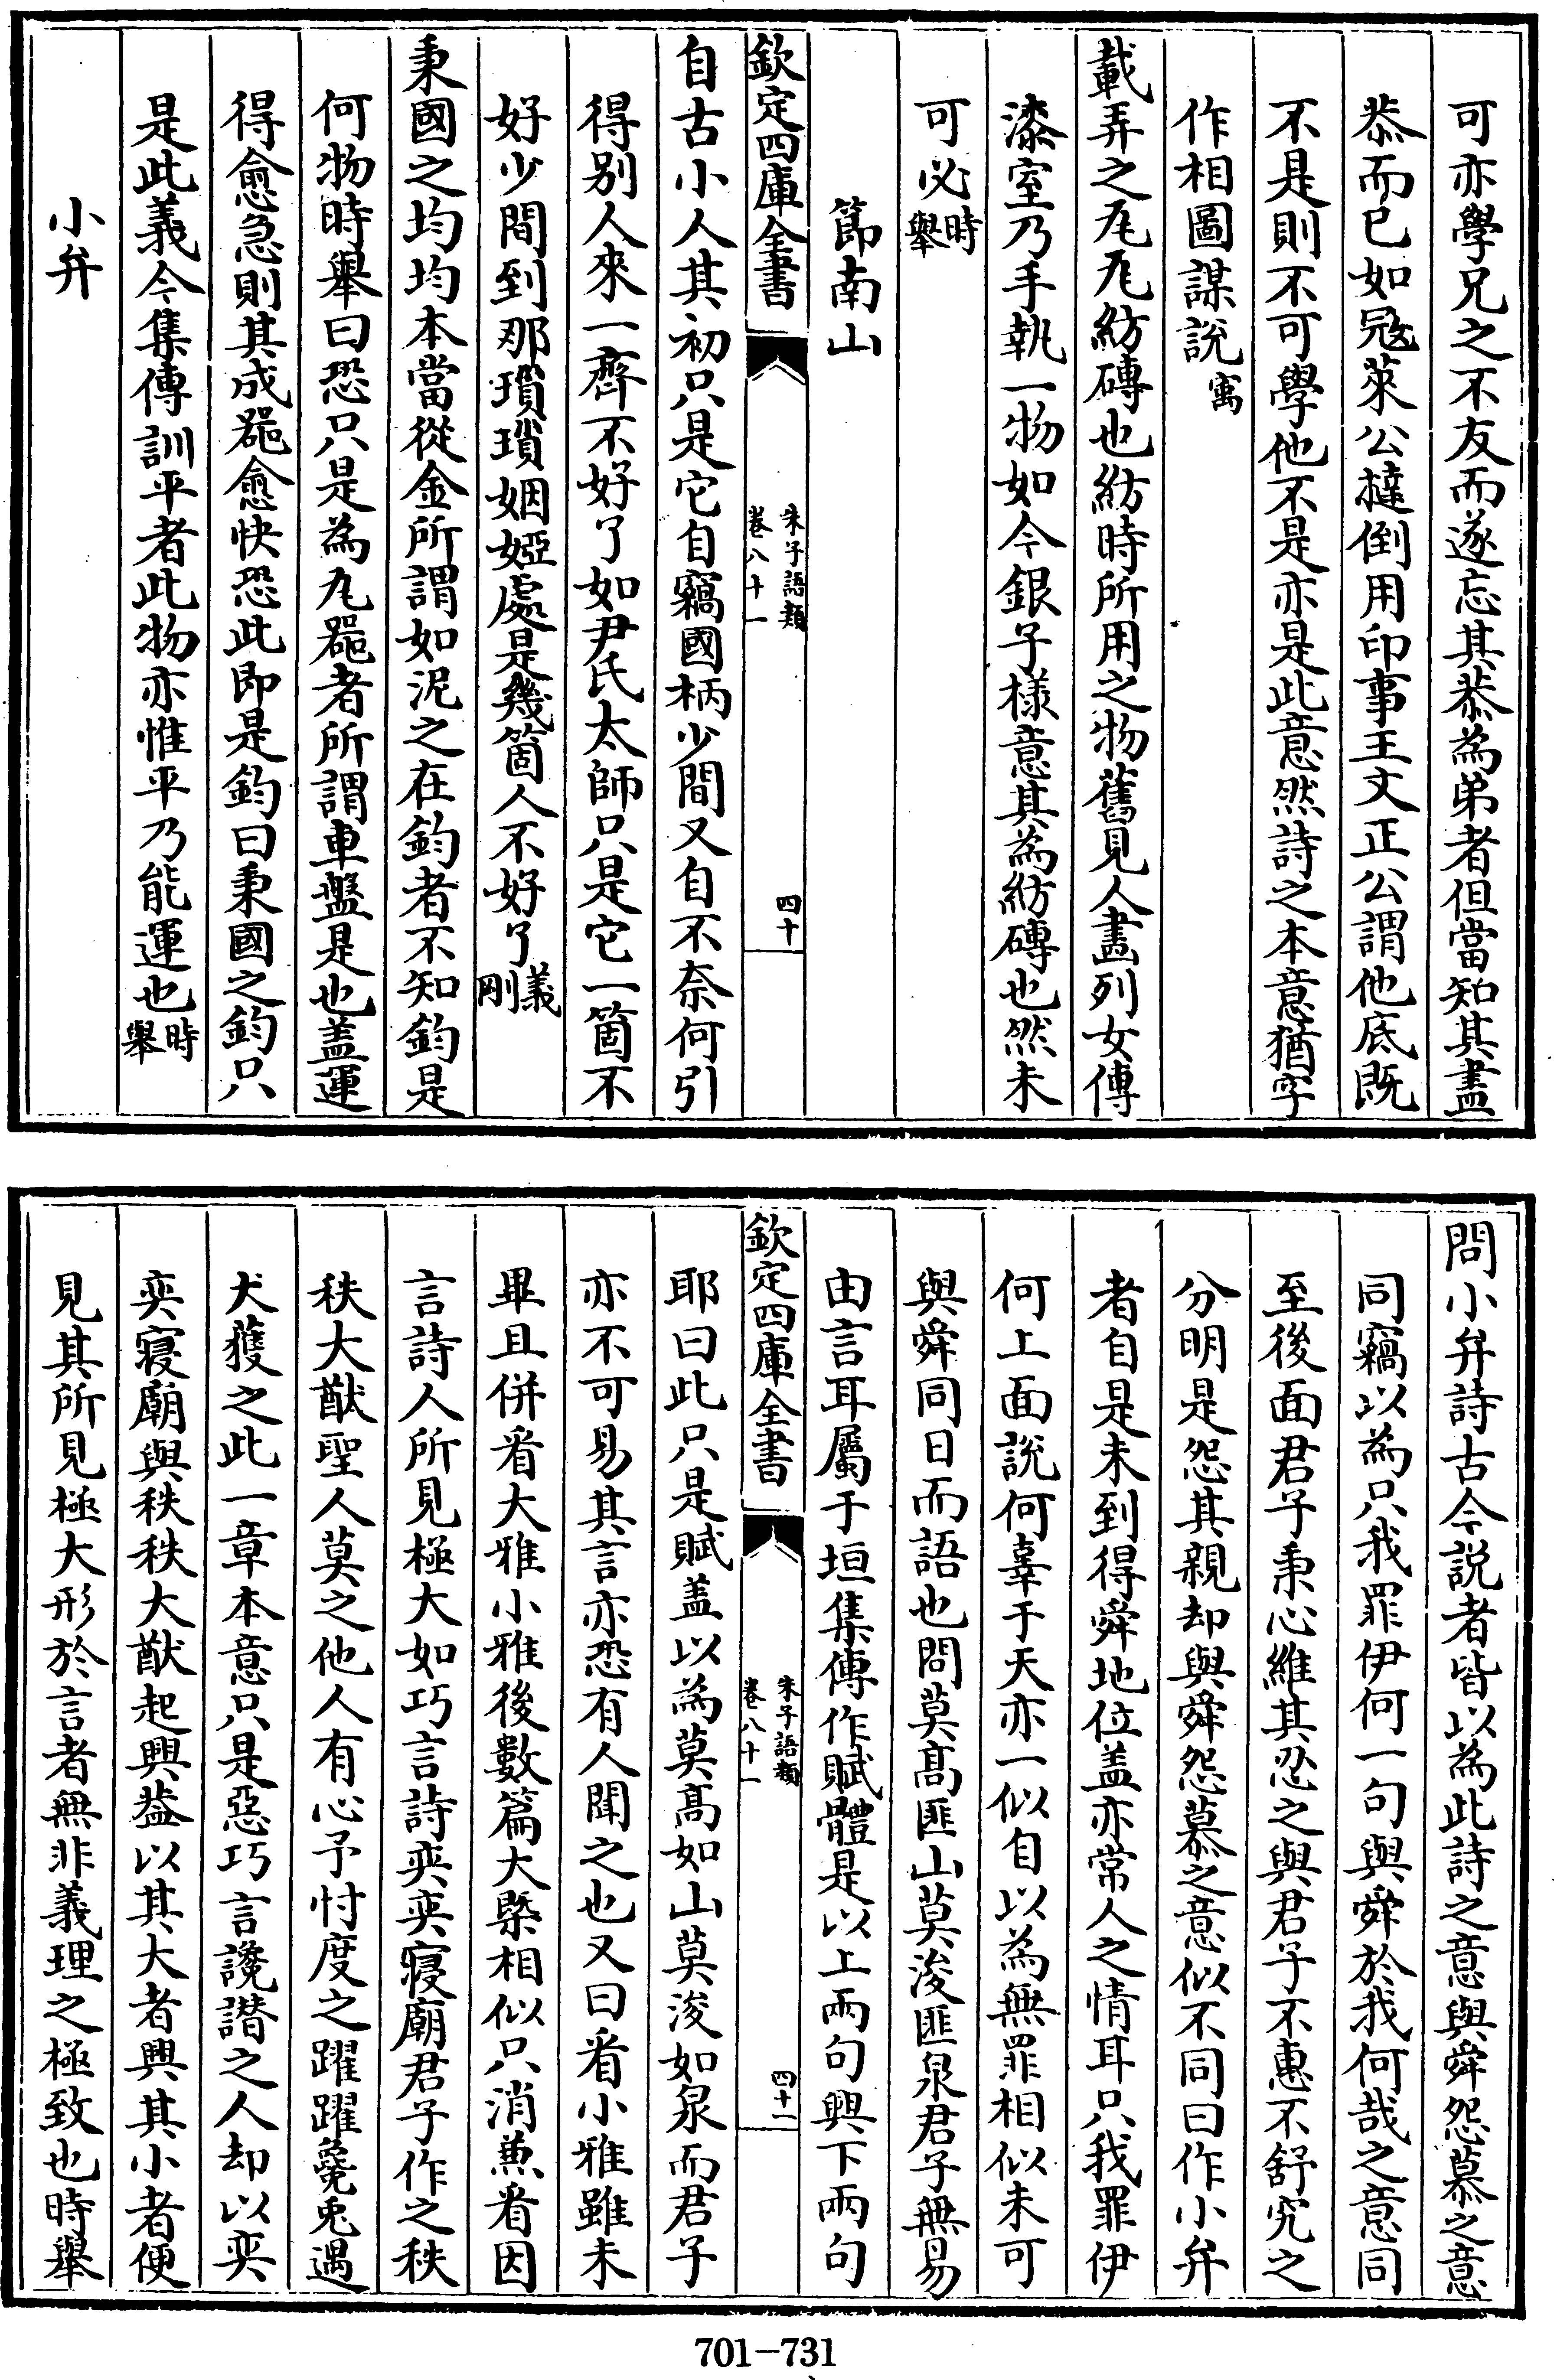 可亦學兄之不友而遂忘其恭為弟者但當知其盡
恭而已如冦萊公撻倒用印事王文正公謂他底既
不是則不可學他不是亦是此意然詩之本意猶字
作相圖謀說㝢
載弄之瓦瓦紡磚也紡時所用之物舊見人畫列女傳
漆室乃手執一物如今銀子様意其為紡磚也然未
可必時舉
節南山
欽定四庫全書
朱子語類
卷八十一
四十
自古小人其初只是它自竊國柄少間又自不奈何引
得别人來一齊不好了如尹氏太師只是它一箇不
好少間到那瑣瑣姻婭處是幾箇人不好了義剛
秉國之均均本當從金所謂如泥之在鈞者不知鈞是
何物時舉曰恐只是為瓦器者所謂車盤是也盖運
得愈急則其成器愈快恐此即是鈞曰秉國之鈞只
是此義今集傳訓平者此物亦惟平乃能運也時舉
小弁
問小弁詩古今説者皆以為此詩之意與舜怨慕之意
同竊以為只我罪伊何一句與舜於我何哉之意同
至後面君子秉心維其忍之與君子不惠不舒究之
分明是怨其親却與舜怨慕之意似不同曰作小弁
者自是未到得舜地位盖亦常人之情耳只我罪伊
何上面說何辜于天亦一似自以為無罪相似未可
與舜同日而語也問莫髙匪山莫浚匪泉君子無易
由言耳屬于垣集傳作賦體是以上兩句興下兩句
欽定四庫全書
朱子語類
卷八十一
四十一
耶曰此只是賦盖以為莫髙如山莫浚如泉而君子
亦不可易其言亦恐有人聞之也又曰看小雅雖未
畢且併看大雅小雅後數篇大槩相似只消兼看因
言詩人所見極大如巧言詩奕奕寝廟君子作之秩
秩大猷聖人莫之他人有心予忖度之躍躍毚兎遇
犬獲之此一章本意只是惡巧言讒譖之人却以奕
奕寝廟與秩秩大猷起興葢以其大者興其小者便
見其所見極大形於言者無非義理之極致也時舉
701-731